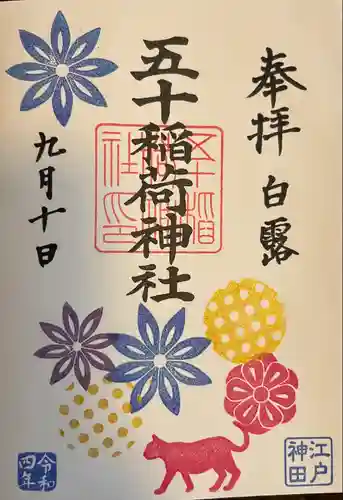 奉拝 白露
五十稲荷神社
九月十日
令和
四年
江戸
神田